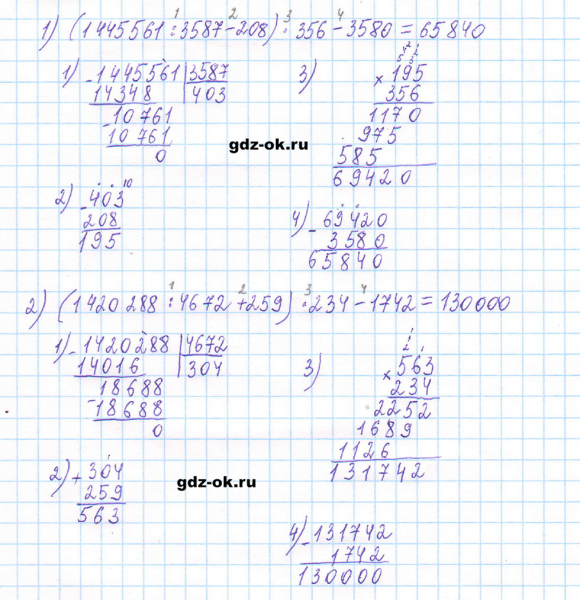 1) (1445561 : 3587 - 208) · 356 - 3580 = 65840
1 2 3 4
1) - 1445561 | 3587
14348 403
- 10761
10761
0
3) × 195
356
1170
975
585
69420
gdz-ok.ru
2) - 403
208
195
4) - 69420
3580
65840
2) (1420288 : 4672 + 259) · 234 - 1742 = 130000
1 2 3 4
1) - 1420288 | 4672
14016 304
- 18688
18688
0
3) × 563
234
2252
1689
1126
131742
2) + 304
259
563
gdz-ok.ru
4) - 131742
1742
130000